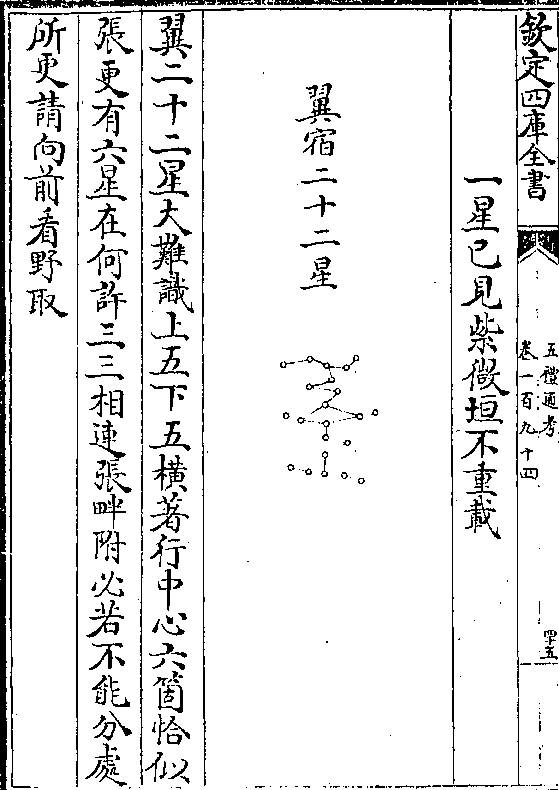 欽定四庫全書
五禮通考
卷一百九十四
四十五
一星已見紫微垣不重載
翼宿二十二星
翼二十二星大難識上五下五横著行中心六箇恰似
張更有六星在何許三三相連張畔附必若不能分處
所更請向前看野取